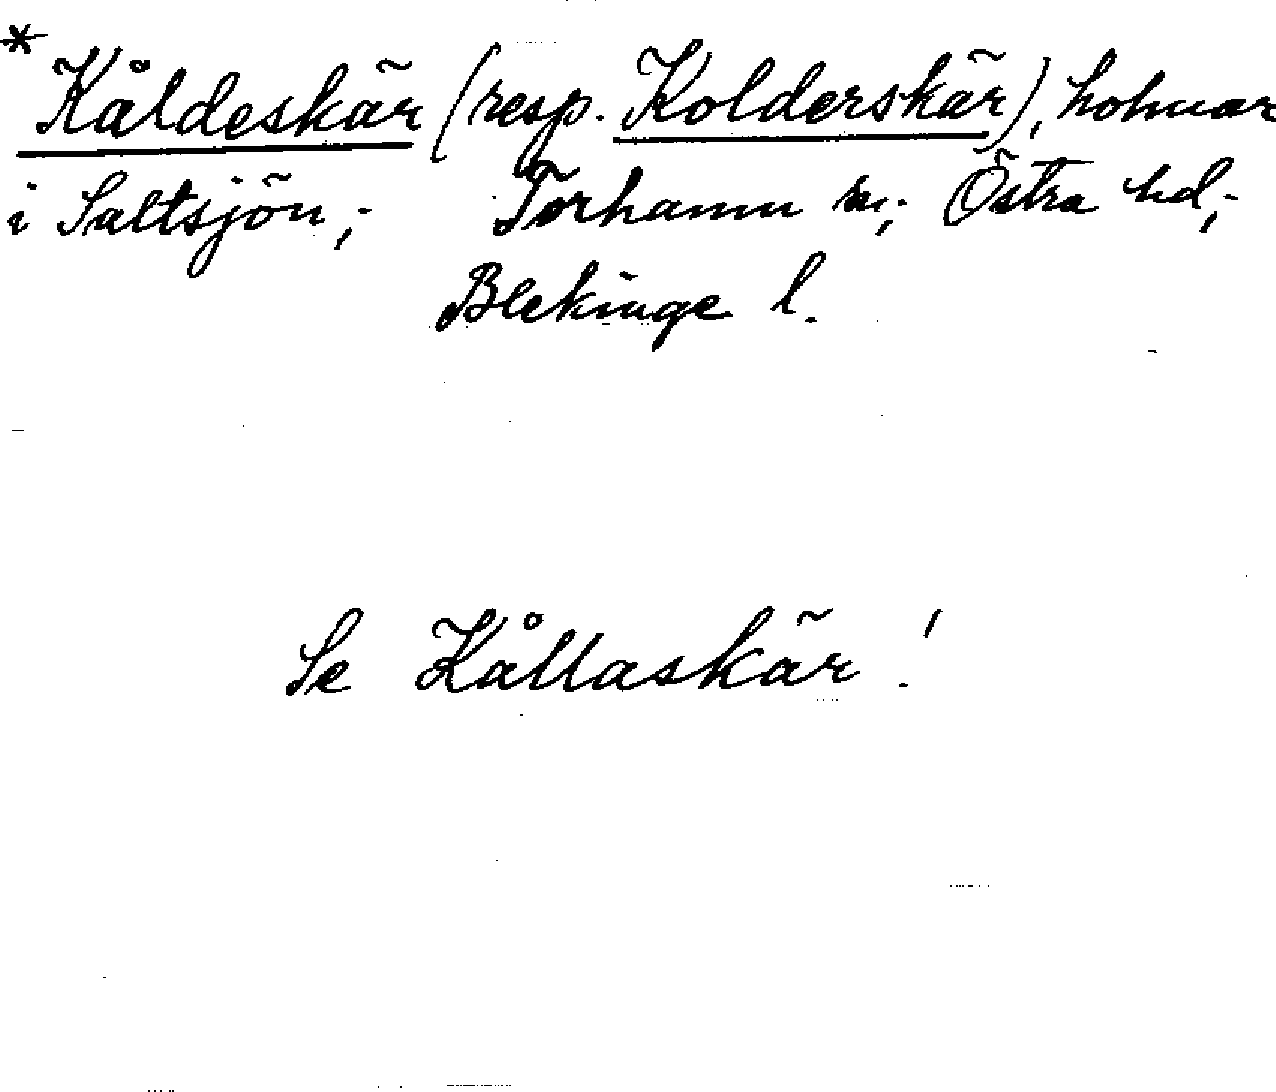 * Kåldeskär (resp. Kolderskär), holmar
i Saltsjön,- Torhamn sn,- Östra hd,-
Blekinge l.
Se Kållaskär!